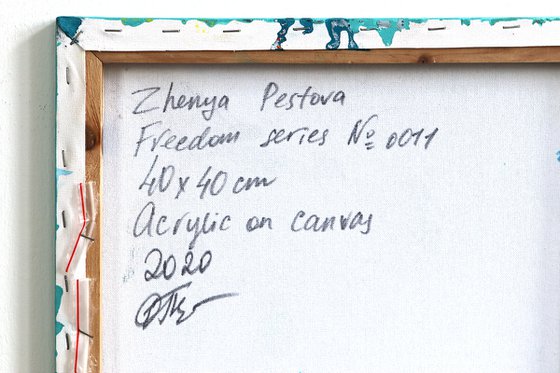 Zhenya Pestova
Freedom series № 0011
40x40cm
Acrylic on canvas
2020